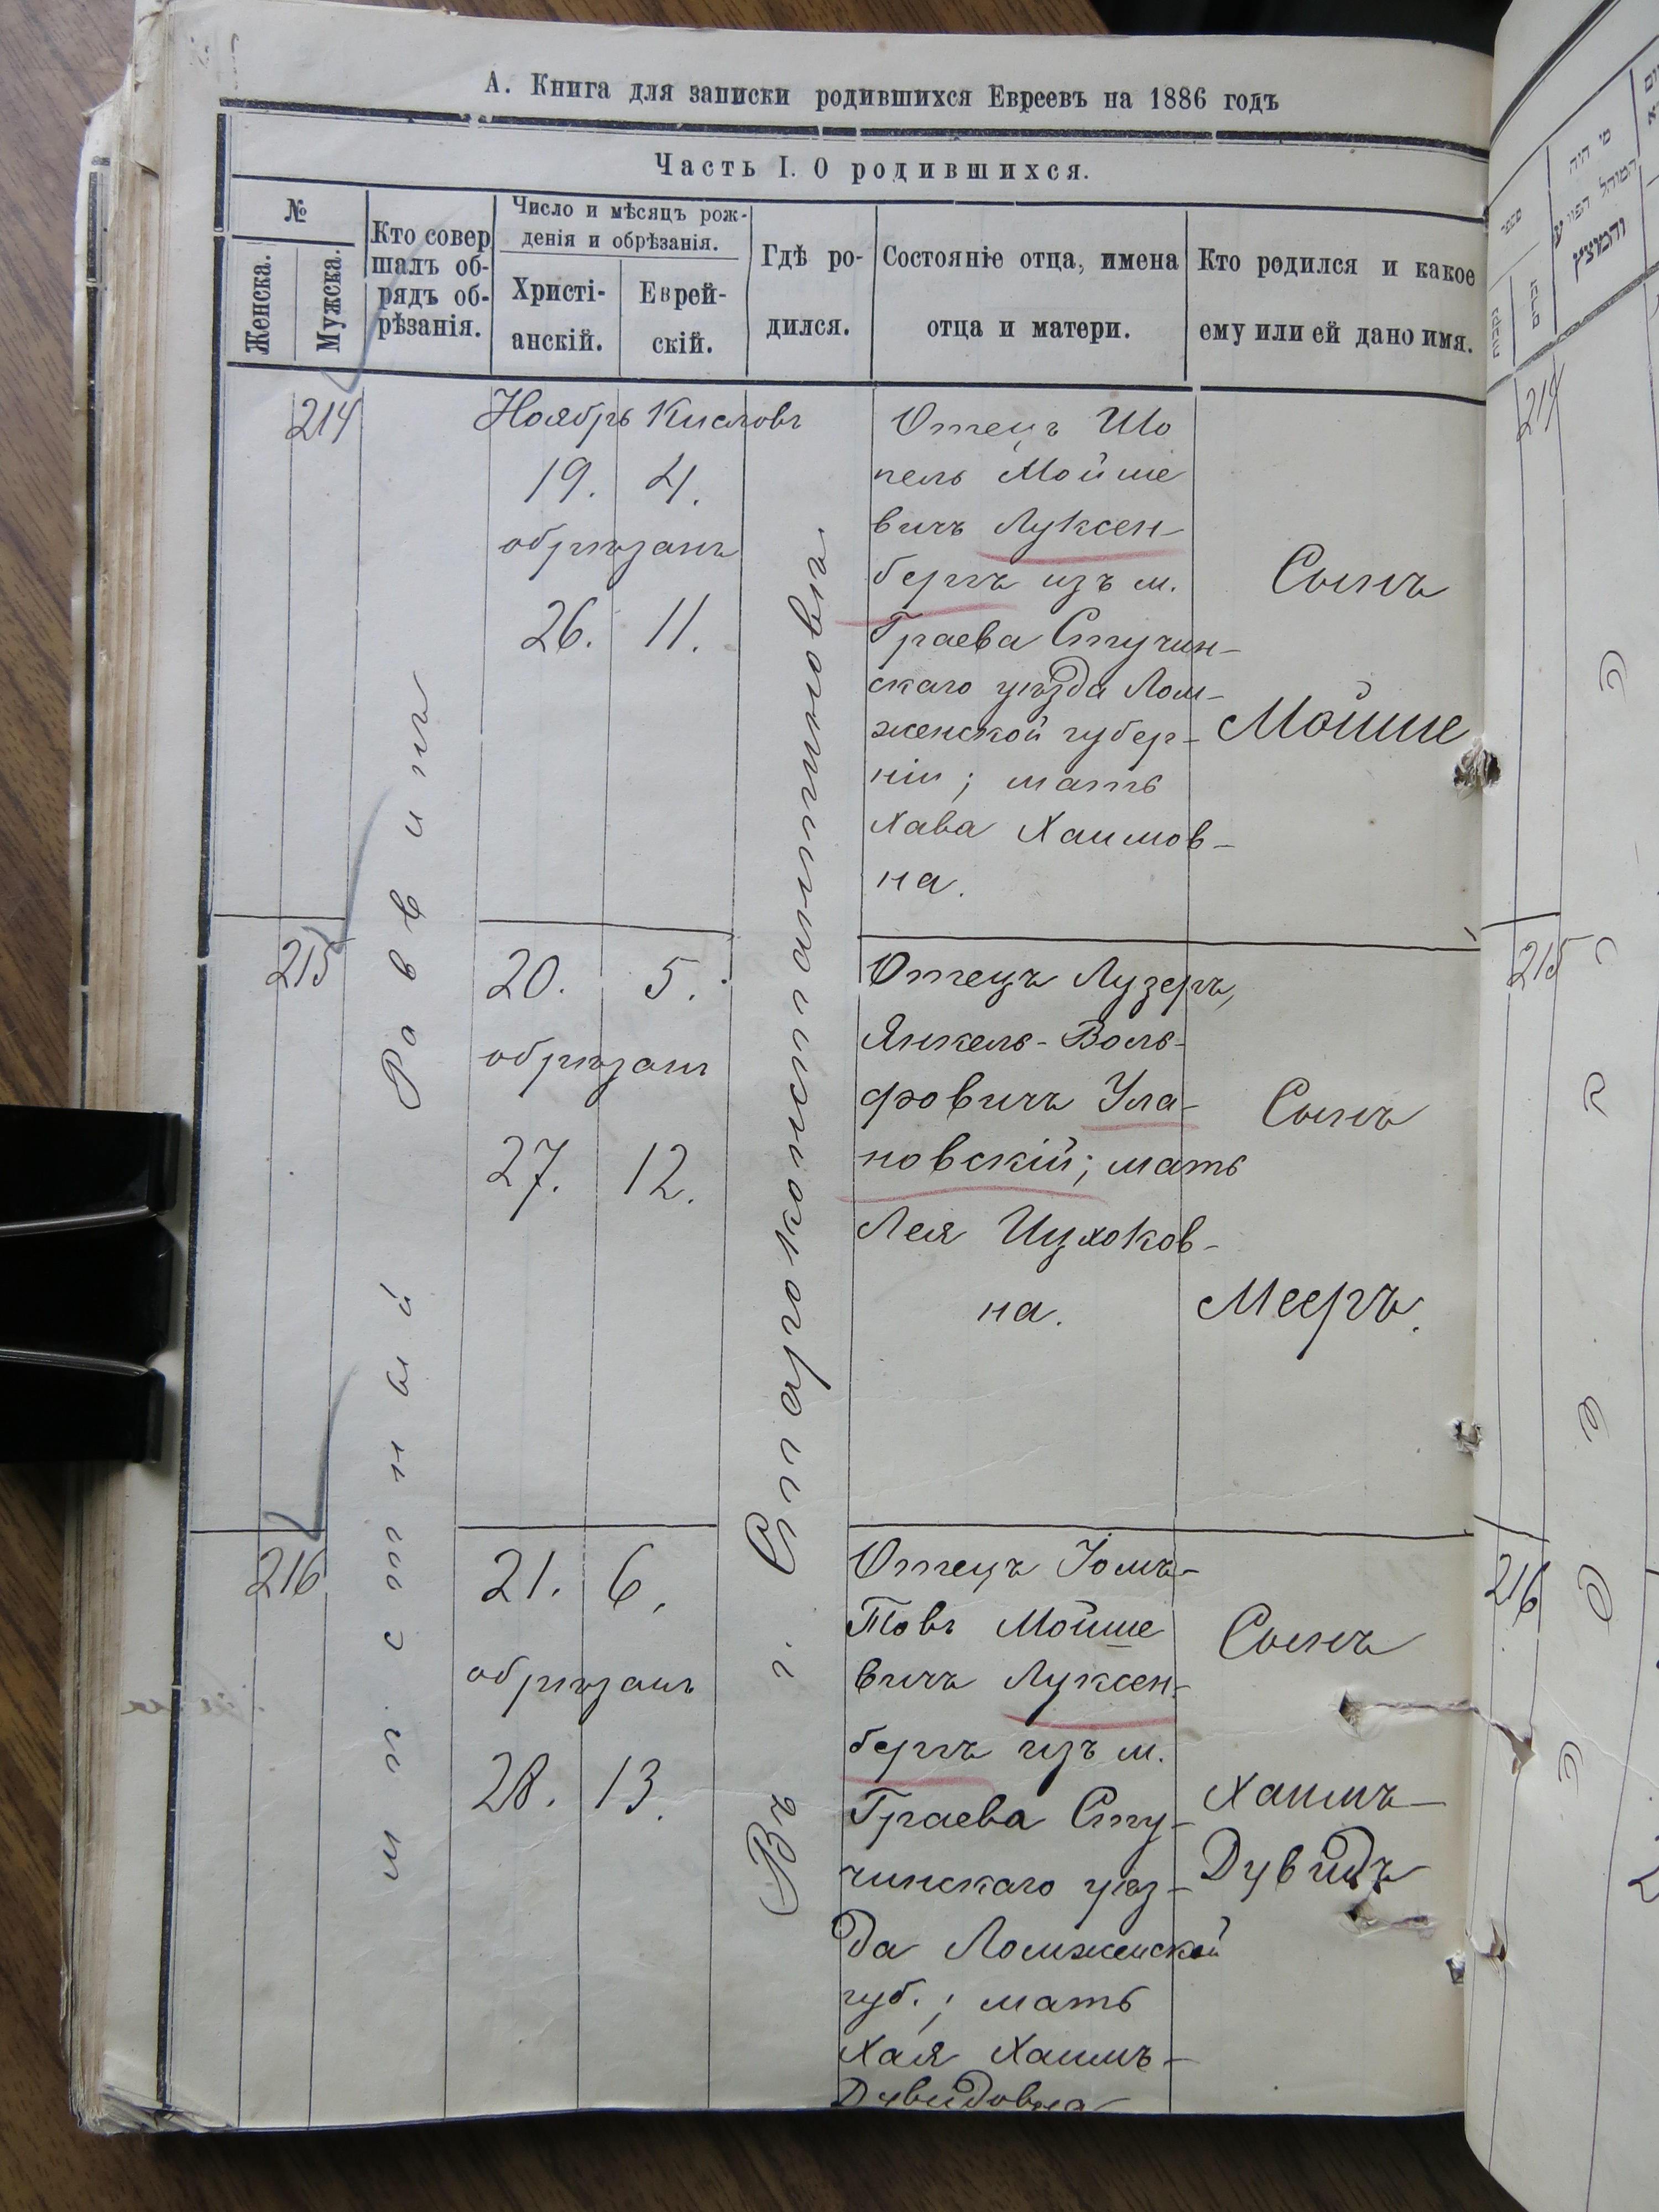 А. Книга для записки родившихся Евреевъ на 1886 годъ
Часть I. О родившихся.
№
Женска.
Мужска.
Кто совер
шалъ об-
рядъ об-
рѣзанія.
Число и мѣсяцъ рож-
денія и обрѣзанія.
Христі-
анскій.
Еврей-
скій.
Гдѣ ро-
дился.
Состояніе отца, имена
отца и матери.
Кто родился и какое
ему или ей дано имя.
Раввинъ
мѣстный
Въ г. Староконстантиновѣ
214
Ноябрь Кисловъ
19. 4.
обрѣзанъ
26. 11.
Отецъ Шо
пель Мойше
вичъ Луксен-
бергъ изъ м.
Граева Стучин-
скаго уѣзда Лом-
женской губер-
ніи; мать
Хава Хаимов-
на.
Сынъ
Мойше
215
20. 5.
обрѣзанъ
27. 12.
Отецъ Лузеръ,
Янкель-Воль-
фовичъ Ула-
новскій; мать
Лея Ицхоков-
на.
Сынъ
Мееръ.
216
21. 6.
обрѣзанъ
28. 13.
Отецъ Іомъ-
Товъ Мойше
вичъ Луксен-
бергъ изъ м.
Граева Сту-
чинскаго уѣз-
да Ломженской
губ.; мать
Хая Хаимъ-
Дувидовна
Сынъ
Хаимъ-
Дувидъ
מי היה
המוהל
והמוצץ
מספר
214
215
216